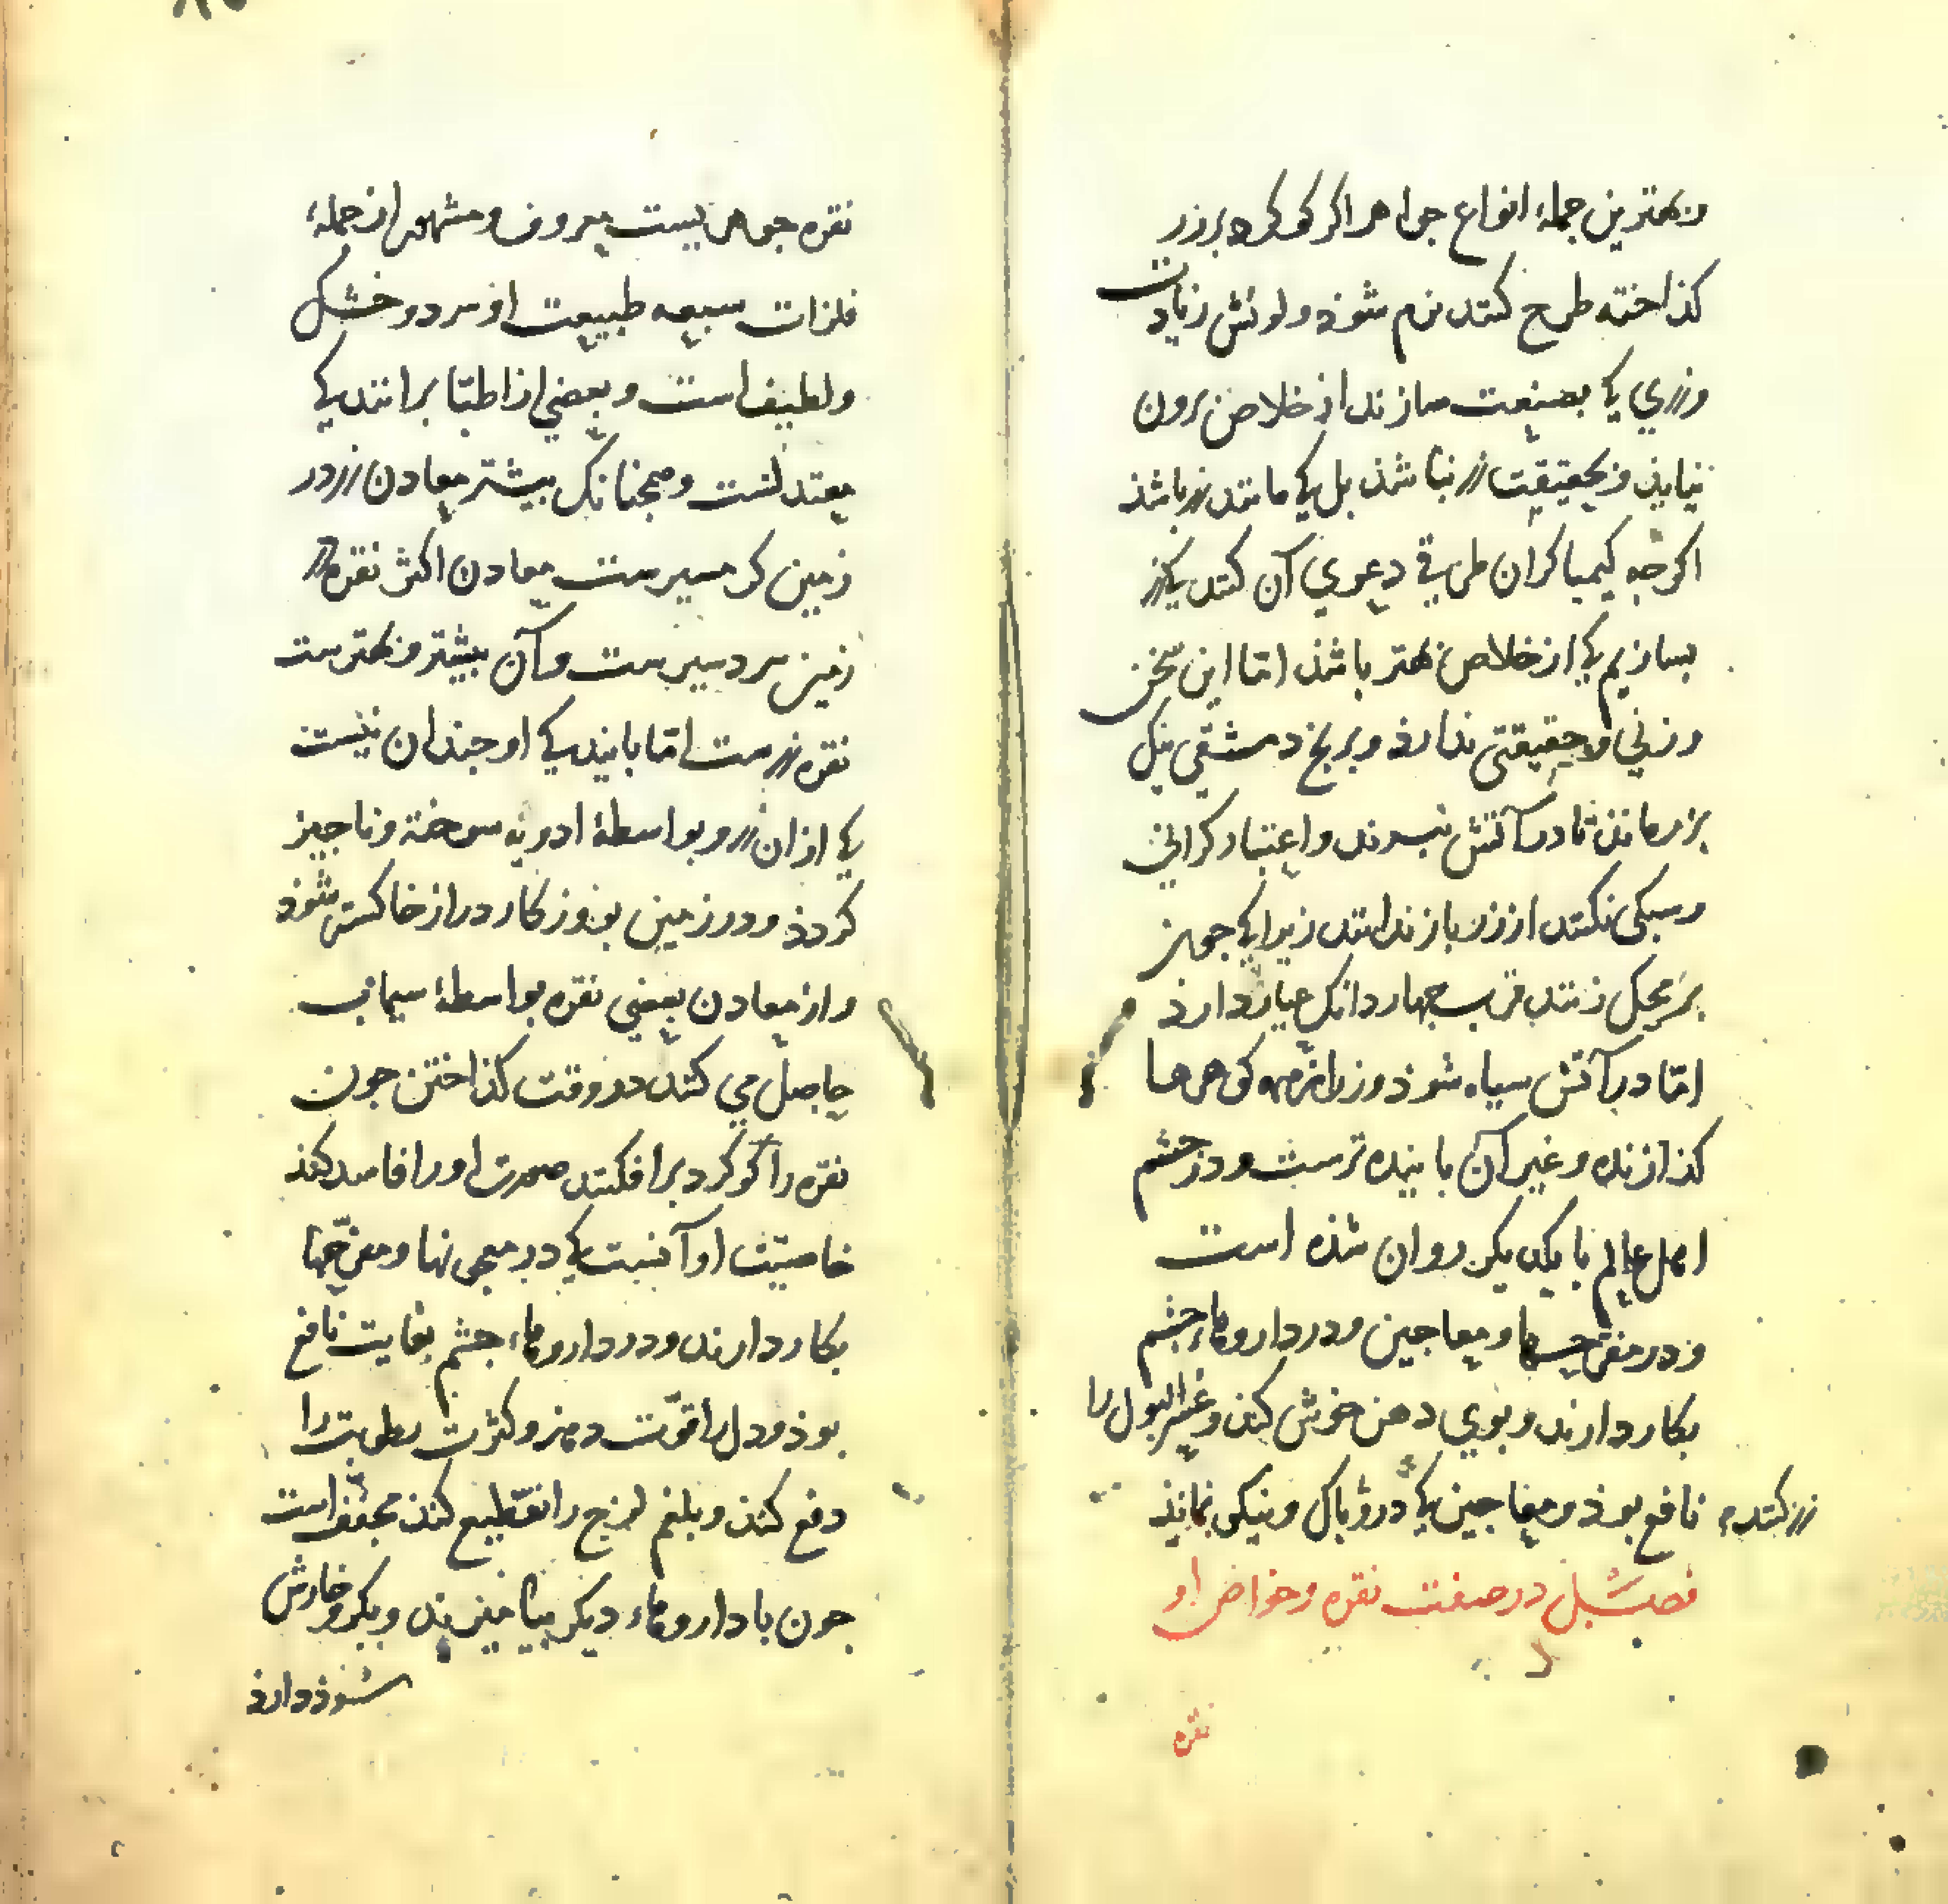 وبهترین جملهٔ انواع جواهر اکر کوکرد بر زر
کذاخته طرح کنند نرم شوذ و لونش زیادت
وزری کی بصنعت سازند از خلاص برون
نیایذ و بحقیقت زر نباشذ بل کی مانند زر باشذ
اکرجه کیمیاکران طریق دعوی آن کنند کی زر
بسازیم کی از خلاص بهتر باشذ امّا این سخن
وزنی و حقیقتی ندارذ و برنج دمشقی نیک
بزر ماند تا در آتش نبرند و اعتبار کرانی
و سبکی نکنند از زر باز ندانند زیرا کی جون
بر محک زنند قرب جهار دانک عیار دارذ
امّا در آتش سیاه شوذ و زر از همه کوهرها
کذازنده و غیر آن باینده ترست و در جشم
اهل عالم با یکدیکر روان شذه است
و در مفرحها و معاجین و در داروهاء جشم
بکار دارند و بوی دهن خوش کند و عسر البول را
نافع بوذ و معاجین کی درو باک و نیکی نمایذ
زر کنند
فصل در صفت نقره و خواص او
نقره
نقره جوهریست معروف و مشهور از جملهٔ
فلزات سبعه طبیعت او سرد و خشک
و لطیف است و بعضی از اطبّا برانند کی
معتدلست و همجنانک بیشتر معادن زر در
زمین کرمسیرست معادن اکثر نقره در
زمین سردسیرست و آن بیشتر و بهترست
نقره زرست امّا باینده کی او جندان نیست
کی ازان زر و بواسطهٔ ادویه سوخته و ناجیز
کردذ و در زمین بروزکار دراز خاکستر شوذ
و از معادن بعضی نقره بواسطهٔ سیماب
حاصل می کنند در وقت کذاختن جون
نقره را کوکرد برافکنند صورت او را فاسد کند
خاصیت او آنست کی در معجونها و مفرّحها
بکار دارند و در داروهاء جشم بغایت نافع
بوذ و دل را قوّت دهد و کثرت رطوبت را
دفع کند و بلغم لزج را تقطیع کند مجفّف است
جون با داروهاء دیکر بیامیزند و بکر و خارش
سوذ دارذ